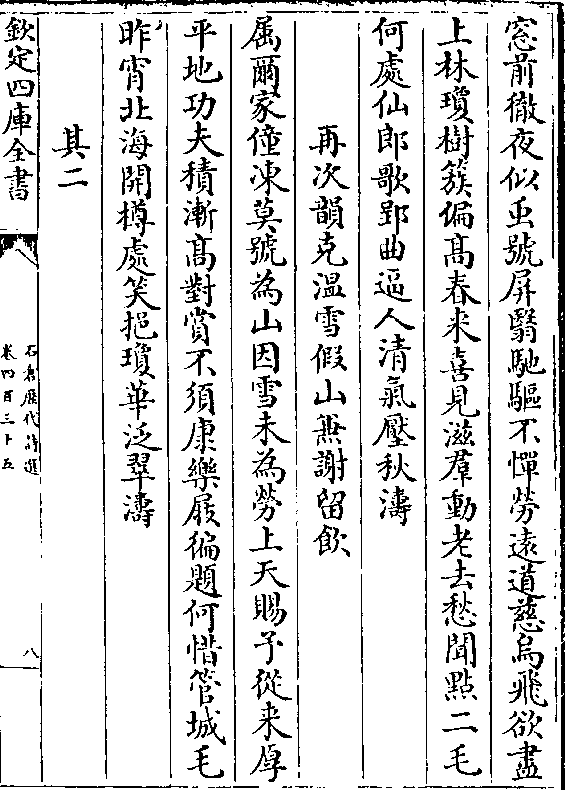 窓前徹夜似䖝號屏翳馳驅不憚勞遠道慈烏飛欲盡
上林瓊樹簇偏髙春来喜見滋羣動老去愁聞點二毛
何處仙郎歌郢曲逼人清氣壓秋濤
再次韻克溫雪假山兼謝留飲
屬爾家僮凍莫號為山因雪未為勞上天賜予從来厚
平地功夫積漸髙對賞不須康樂屐徧題何惜管城毛
昨宵北海開樽處笑挹瓊華泛翠濤
其二
欽定四庫全書
石倉歷代詩選
卷四百三十五
八